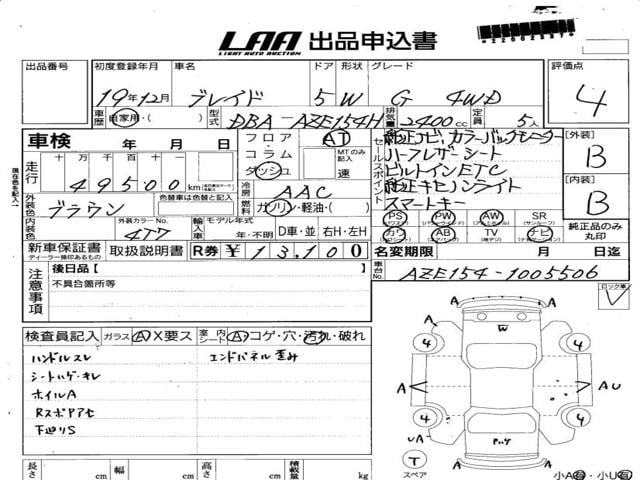 LAA 出品申込書
LIGHT AUTO AUCTION
出品番号 初度登録年月 車名 ドア 形状 グレード 評価点
19年12月 ブレイド 5 W G 4WD 4
車歴 自家用・( ) 型式 DBA-AZE154H 排気量 2400cc 定員 5人
車検 年 月 日
フロア・コラム ダッシュ AT MTのみ記入 速
走行 十 万 千 百 十 一
49500km
冷房 AAC
外装色 ブラウン 色替車は色替と記入
燃料 ガソリン・軽油・( )
内装色 外装カラーNo. 4T7 輸入車 モデル年式 年・不明 D車・並 右H・左H
セールスポイント
純正ナビ、カラーバックモニター
ハーフレザーシート
ビルトインETC
純正キセノンライト
スマートキー
PS PW AW SR
カワ AB TV ナビ
純正品のみ丸印
[外装] B
[内装] B
新車保証書 取扱説明書 R券 ¥13,100
ディーラー捺印あるもの
名変期限 月 日迄
車台No. AZE154-1005506
現在色を記入
注意事項
後日品[ ]
不具合箇所等
ロック車
検査員記入 ガラス A X要ス 室内 シート A コゲ・穴・汚れ・破れ
ハンドルスレ エンドパネル歪み
シートハゲ・キレ
ホイルA
Rスポアアセ
下廻りS
A A
W
4 4
A A U
4 4
U A A A
T
スペア
小A有・小U有
長さ cm 幅 cm 高さ cm 積載量 kg